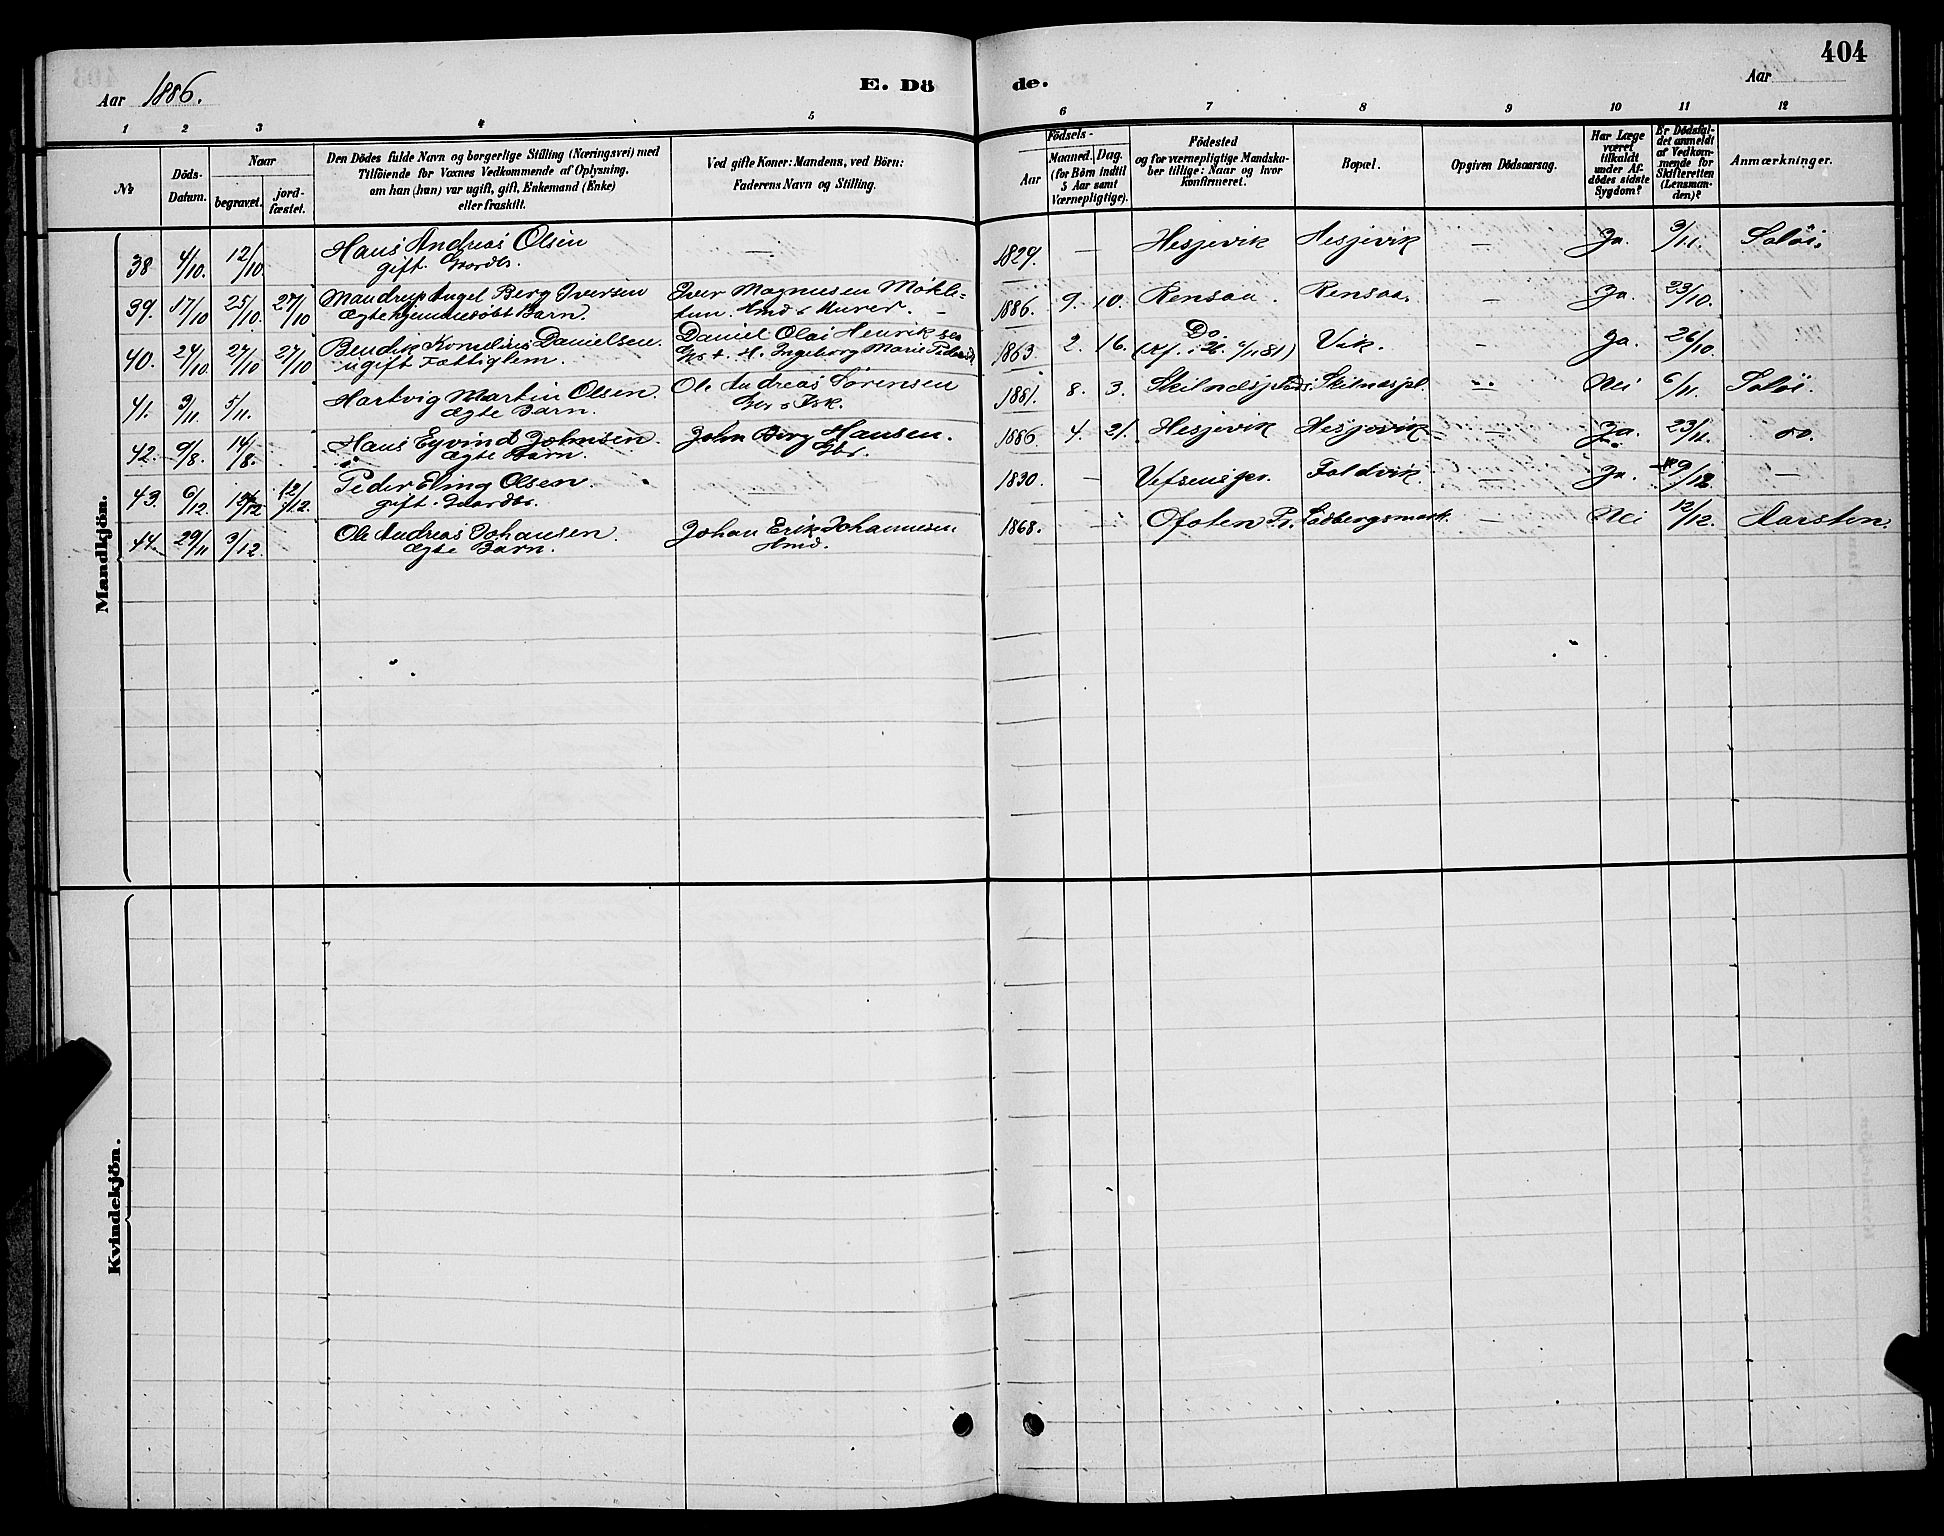 404
Aar 1886.
E. Dö
de.
Aar
1 2 3 4 5 6 7 8 9 10 11 12
№
Döds-Datum.
Naar
begravet.
jord-fæstet.
Den Dödes fulde Navn og borgerlige Stilling (Næringsvei) med
Tilföiende for Voxnes Vedkommende af Oplysning,
om han (hun) var ugift, gift, Enkemand (Enke)
eller fraskilt.
Ved gifte Koner: Mandens, ved Börn:
Faderens Navn og Stilling.
Födsels-
Aar
Maaned. Dag.
(for Börn indtil
5 Aar samt
Værnepligtige).
Födested
og for værnepligtige Mandska-
ber tillige: Naar og hvor
konfirmeret.
Bopæl.
Opgiven Dödsaarsag.
Har Læge
været
tilkaldt
under Af-
dödes sidste
Sygdom?
Er Dödsfal-
det anmeldt
af Vedkom-
mende for
Skifteretten
(Lensman-
den)?
Anmærkninger.
Mandkjön.
38 4/10. 12/10 Hans Andreas Olsen — 1829. — Hesjevik Hesjevik — Ja. 3/11. Soløi.
gift. Gaardbr.
39. 17/10 25/10. 27/10 Mandrup Angel Berg Iversen Iver Magnesen Møkle- 1886. 9. 10. Rensaa. Rensaa. — Ja. 23/10.
Ægte hjemmedøbt Barn. tun. Hmd & Murer.
40. 24/10. 27/10 27/10 Bendik Kornelius Danielsen. Daniel Olai Henriksen 1863. 2. 16. Do Vik. — Ja. 26/10.
ugift Fattiglem. H. Ingeborg Marie
41. 3/11. 5/11. Hartvig Martin Olsen. Ole Andreas Sørensen 1881. 8. 3. Nei 6/11. Soløi.
Ægte Barn.
42. 9/8. 14/8. Hans Eyvind Johnsen. John Berg Hansen. 1886. 4. 21. Hesjevik Hesjevik — Ja. 23/11.
Ægte Barn. Gbr.
43. 6/12. 12/12. Peder Elling Olsen. — 1830. — Foldvik. — Ja. 9/12 —
gift. Gaardbr.
44. 29/11 3/12. Ole Andreas Johansen. Johan Erik Johannesen 1868. — Ofoten Pr. — Nei 12/12. Aarsten.
Ægte Barn. Hmd.
Kvindekjön.